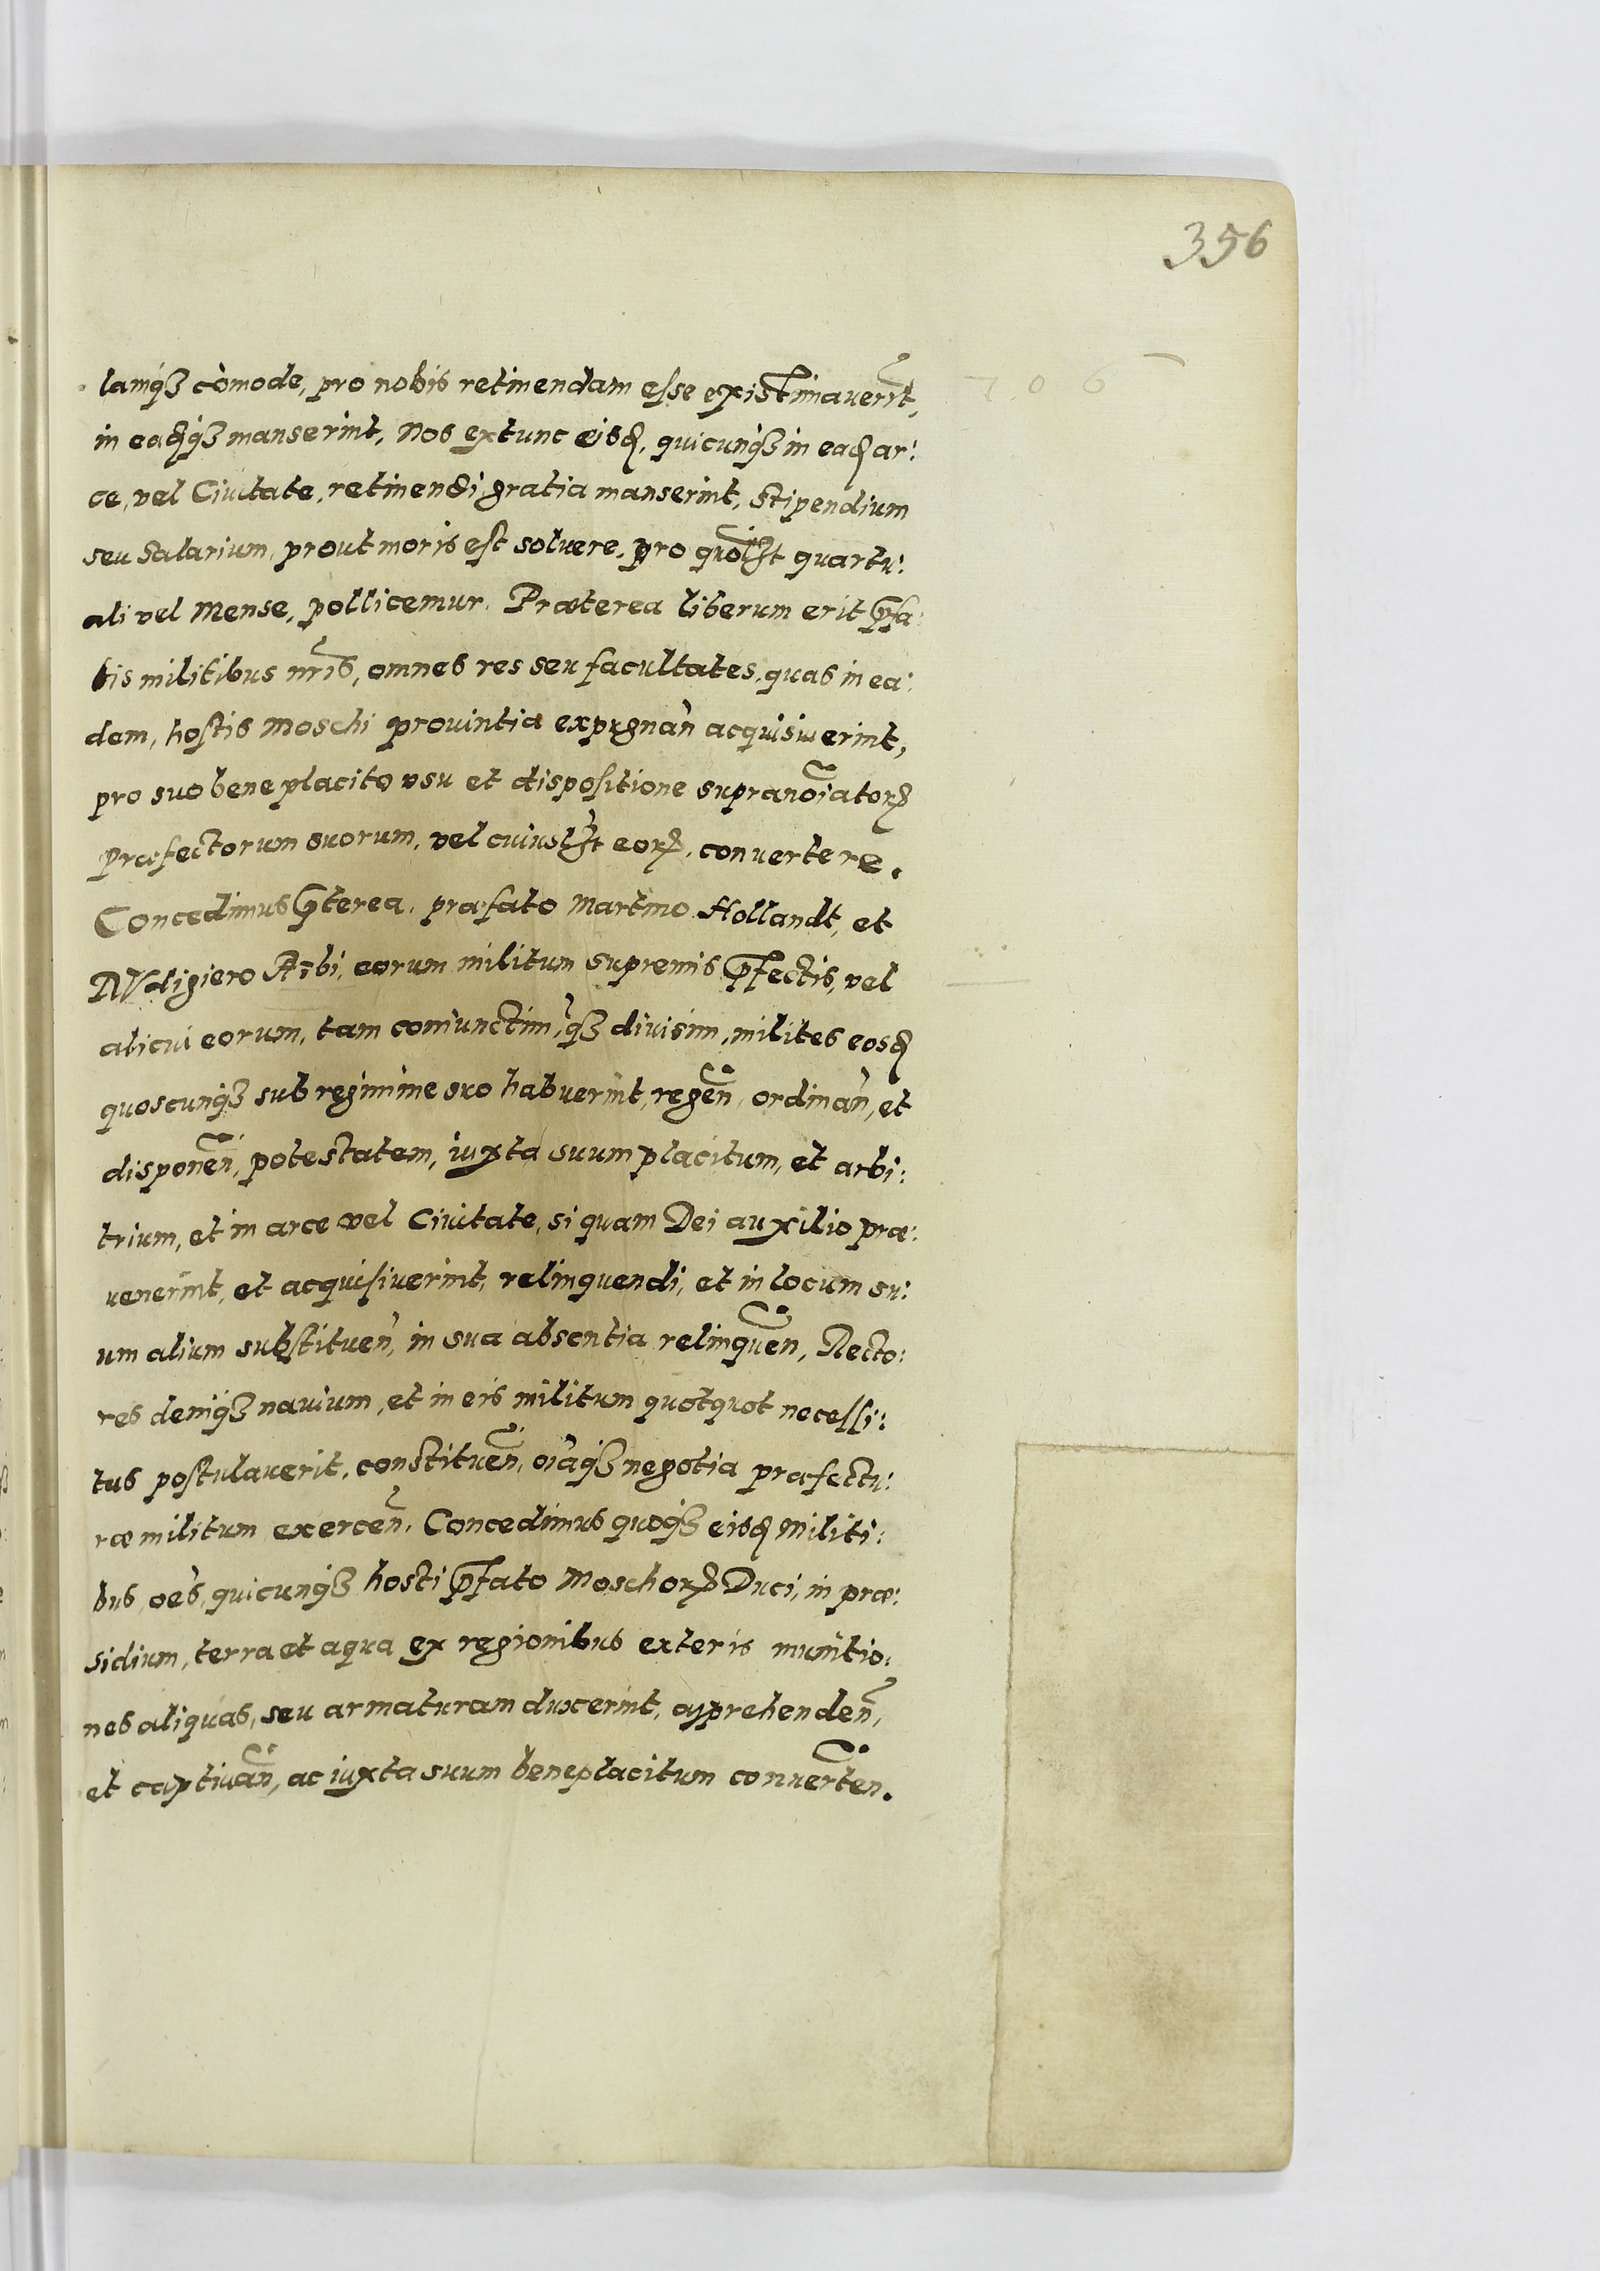 356
lamq̃ȝ cõmode, pro nobis retinendam esse existimauerĩt,
in eadq̃ȝ manserint, Nos extunc eisd, quicunq̃ȝ in ead ar:
ce, vel Ciuitate, retinendi gratia manserint, stipendium
seu Salarium, prout moris est soluere, pro quolȝt quartu:
ali vel Mense, pollicemur. Præterea liberum erit p̃fa:
tis militibus nr̃is, omnes res seu facultates, quas in ea:
dem, hostis Moschi prouintia expugnañ acquisiuerint,
pro suo bene placito vsu et dispositione supranoĩator̃
Præfectorum suorum, vel cuiuslȝt eor̃, conuertere.
Concedimus p̃terea, præfato Martino Hollandt, et
eorum militum supremis p̃fectis, vel
alicui eorum, tam coniunctim, q̃ȝ diuisim, milites eosd
quoscunq̃ȝ sub regimine suo habuerint, regeñ, ordinañ, et
disponeñ, potestatem, iuxta suum placitum, et arbi:
trium, et in arce vel Ciuitate, si quam Dei auxilio præ:
uenerint, et acquisiuerint, relinquendi, et in locum su:
um alium substitueñ, in sua absentia relinqueñ, Recto:
res deniq̃ȝ nauium, et in eis militum quotquot necessi:
tus postulauerit, constitueñ, oĩaq̃ȝ negotia præfectu:
ræ militum exerceñ. Concedimus quoq̃ȝ eisd Militi:
bus, oẽs, quicunq̃ȝ hosti p̃fato Moschor̃ Duci, in præ:
sidium, terra et aqua ex regionibus exteris munitio:
nes aliquas, seu armaturam duxerint, apprehendeñ,
et captiuañ, ac iuxta suum beneplacitum conuerteñ.